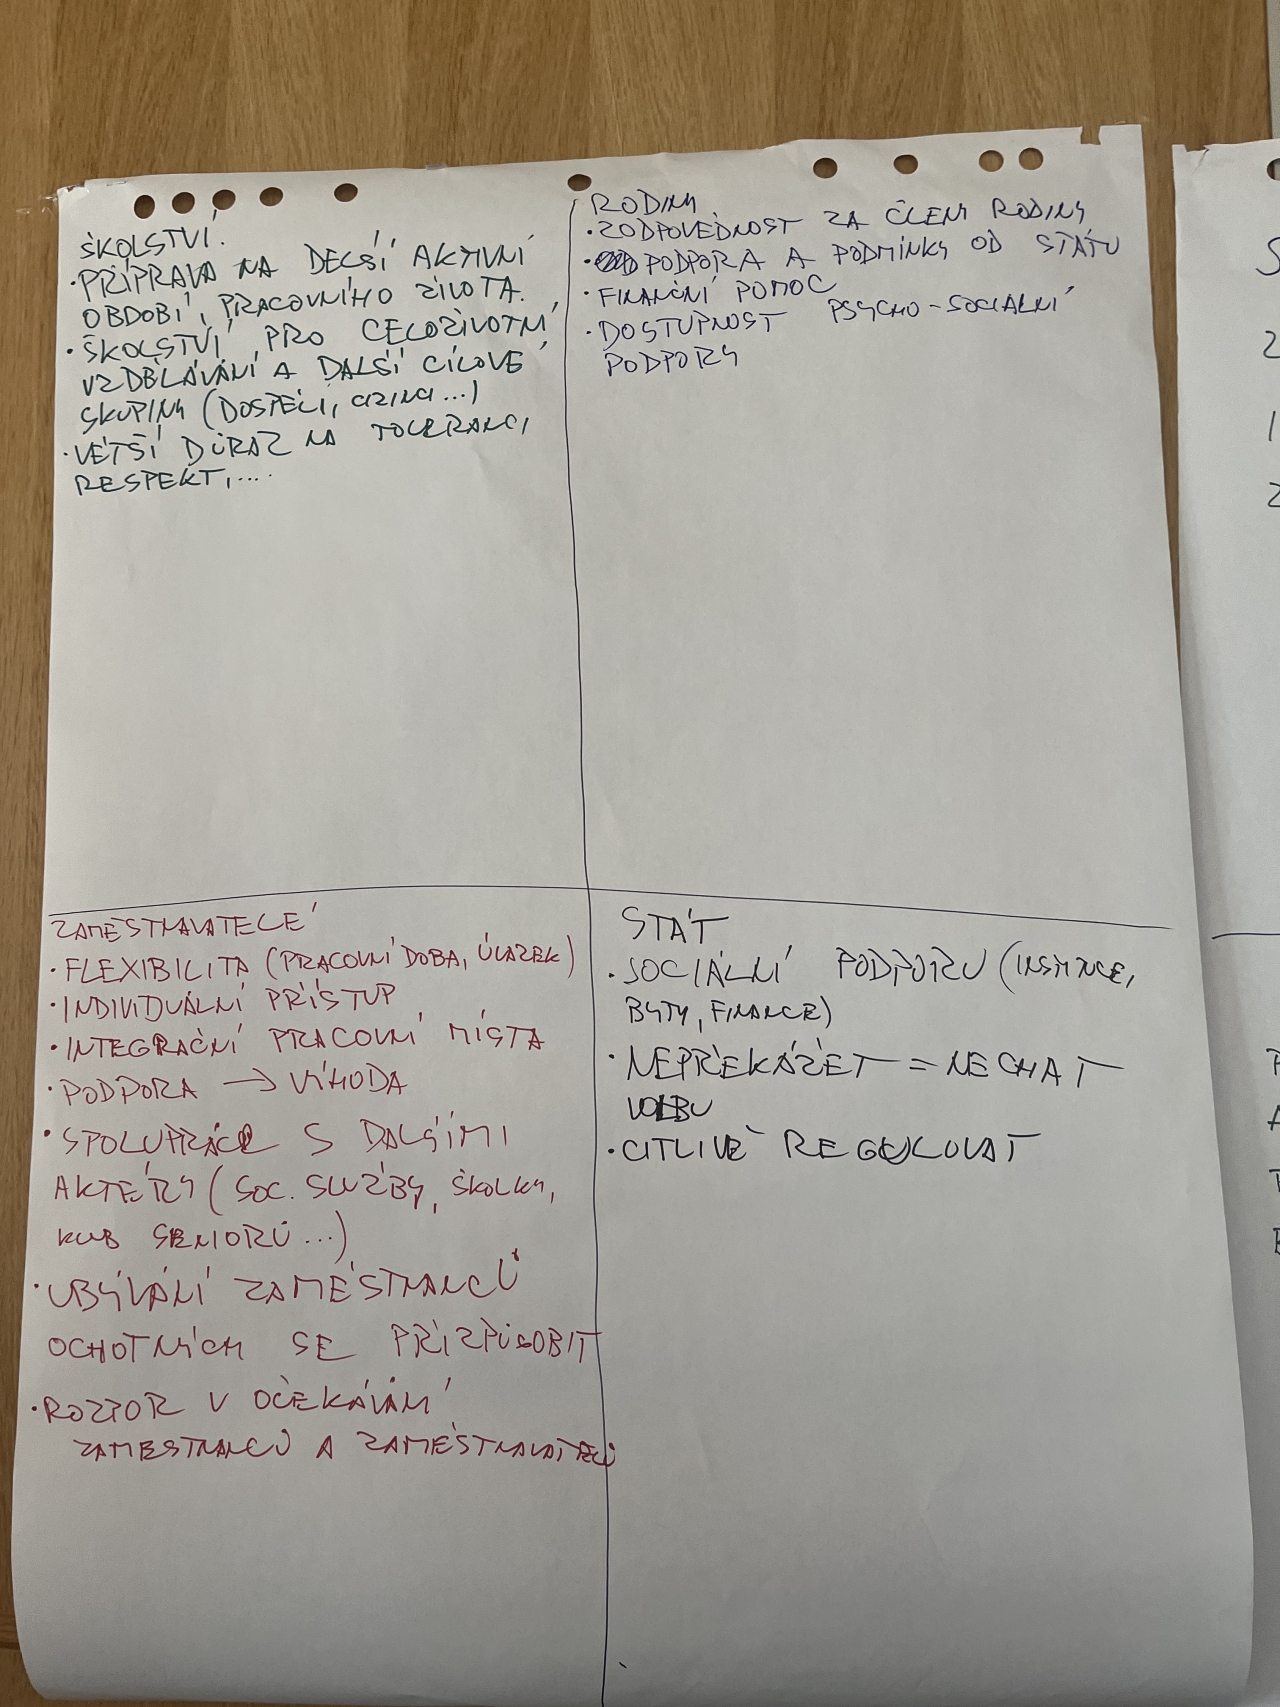 ŠKOLSTVÍ
• PŘÍPRAVA NA DELŠÍ AKTIVNÍ
OBDOBÍ, PRACOVNÍHO ŽIVOTA.
• ŠKOLSTVÍ PRO CELOŽIVOTNÍ
VZDĚLÁVÁNÍ A DALŠÍ CÍLOVÉ
SKUPINY (DOSPĚLÍ, CIZINCI...)
• VĚTŠÍ DŮRAZ NA TOLERANCI,
RESPEKT,....
RODINY
• ZODPOVĚDNOST ZA ČLENY RODINY
• PODPORA A PODMÍNKY OD STÁTU
• FINANČNÍ POMOC
• DOSTUPNOST PSYCHO-SOCIÁLNÍ
PODPORY
ZAMĚSTNAVATELÉ
• FLEXIBILITA (PRACOVNÍ DOBA, ÚVAZEK)
• INDIVIDUÁLNÍ PŘÍSTUP
• INTEGRAČNÍ PRACOVNÍ MÍSTA
• PODPORA → VÍHODA
• SPOLUPRÁCE S DALŠÍMI
AKTÉRY (SOC. SLUŽBY, ŠKOLKY,
KLUB SENIORŮ...)
• UBÝVÁNÍ ZAMĚSTNANCŮ
OCHOTNÝCH SE PŘIZPŮSOBIT
• ROZPOR V OČEKÁVÁNÍ
ZAMĚSTNANCŮ A ZAMĚSTNAVATELŮ
STÁT
• SOCIÁLNÍ PODPORU (INSTINCE,
BYTY, FINANCE)
• NEPŘEKÁŽET = NECHAT
VOLBU
• CITLIVĚ REGULOVAT
S
2
1
2